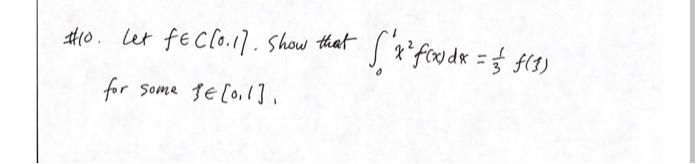 #10. Let f∈C[0.1]. Show that ∫₀¹ x²f(x)dx = 1/3 f(ξ)
for some ξ∈[0,1].